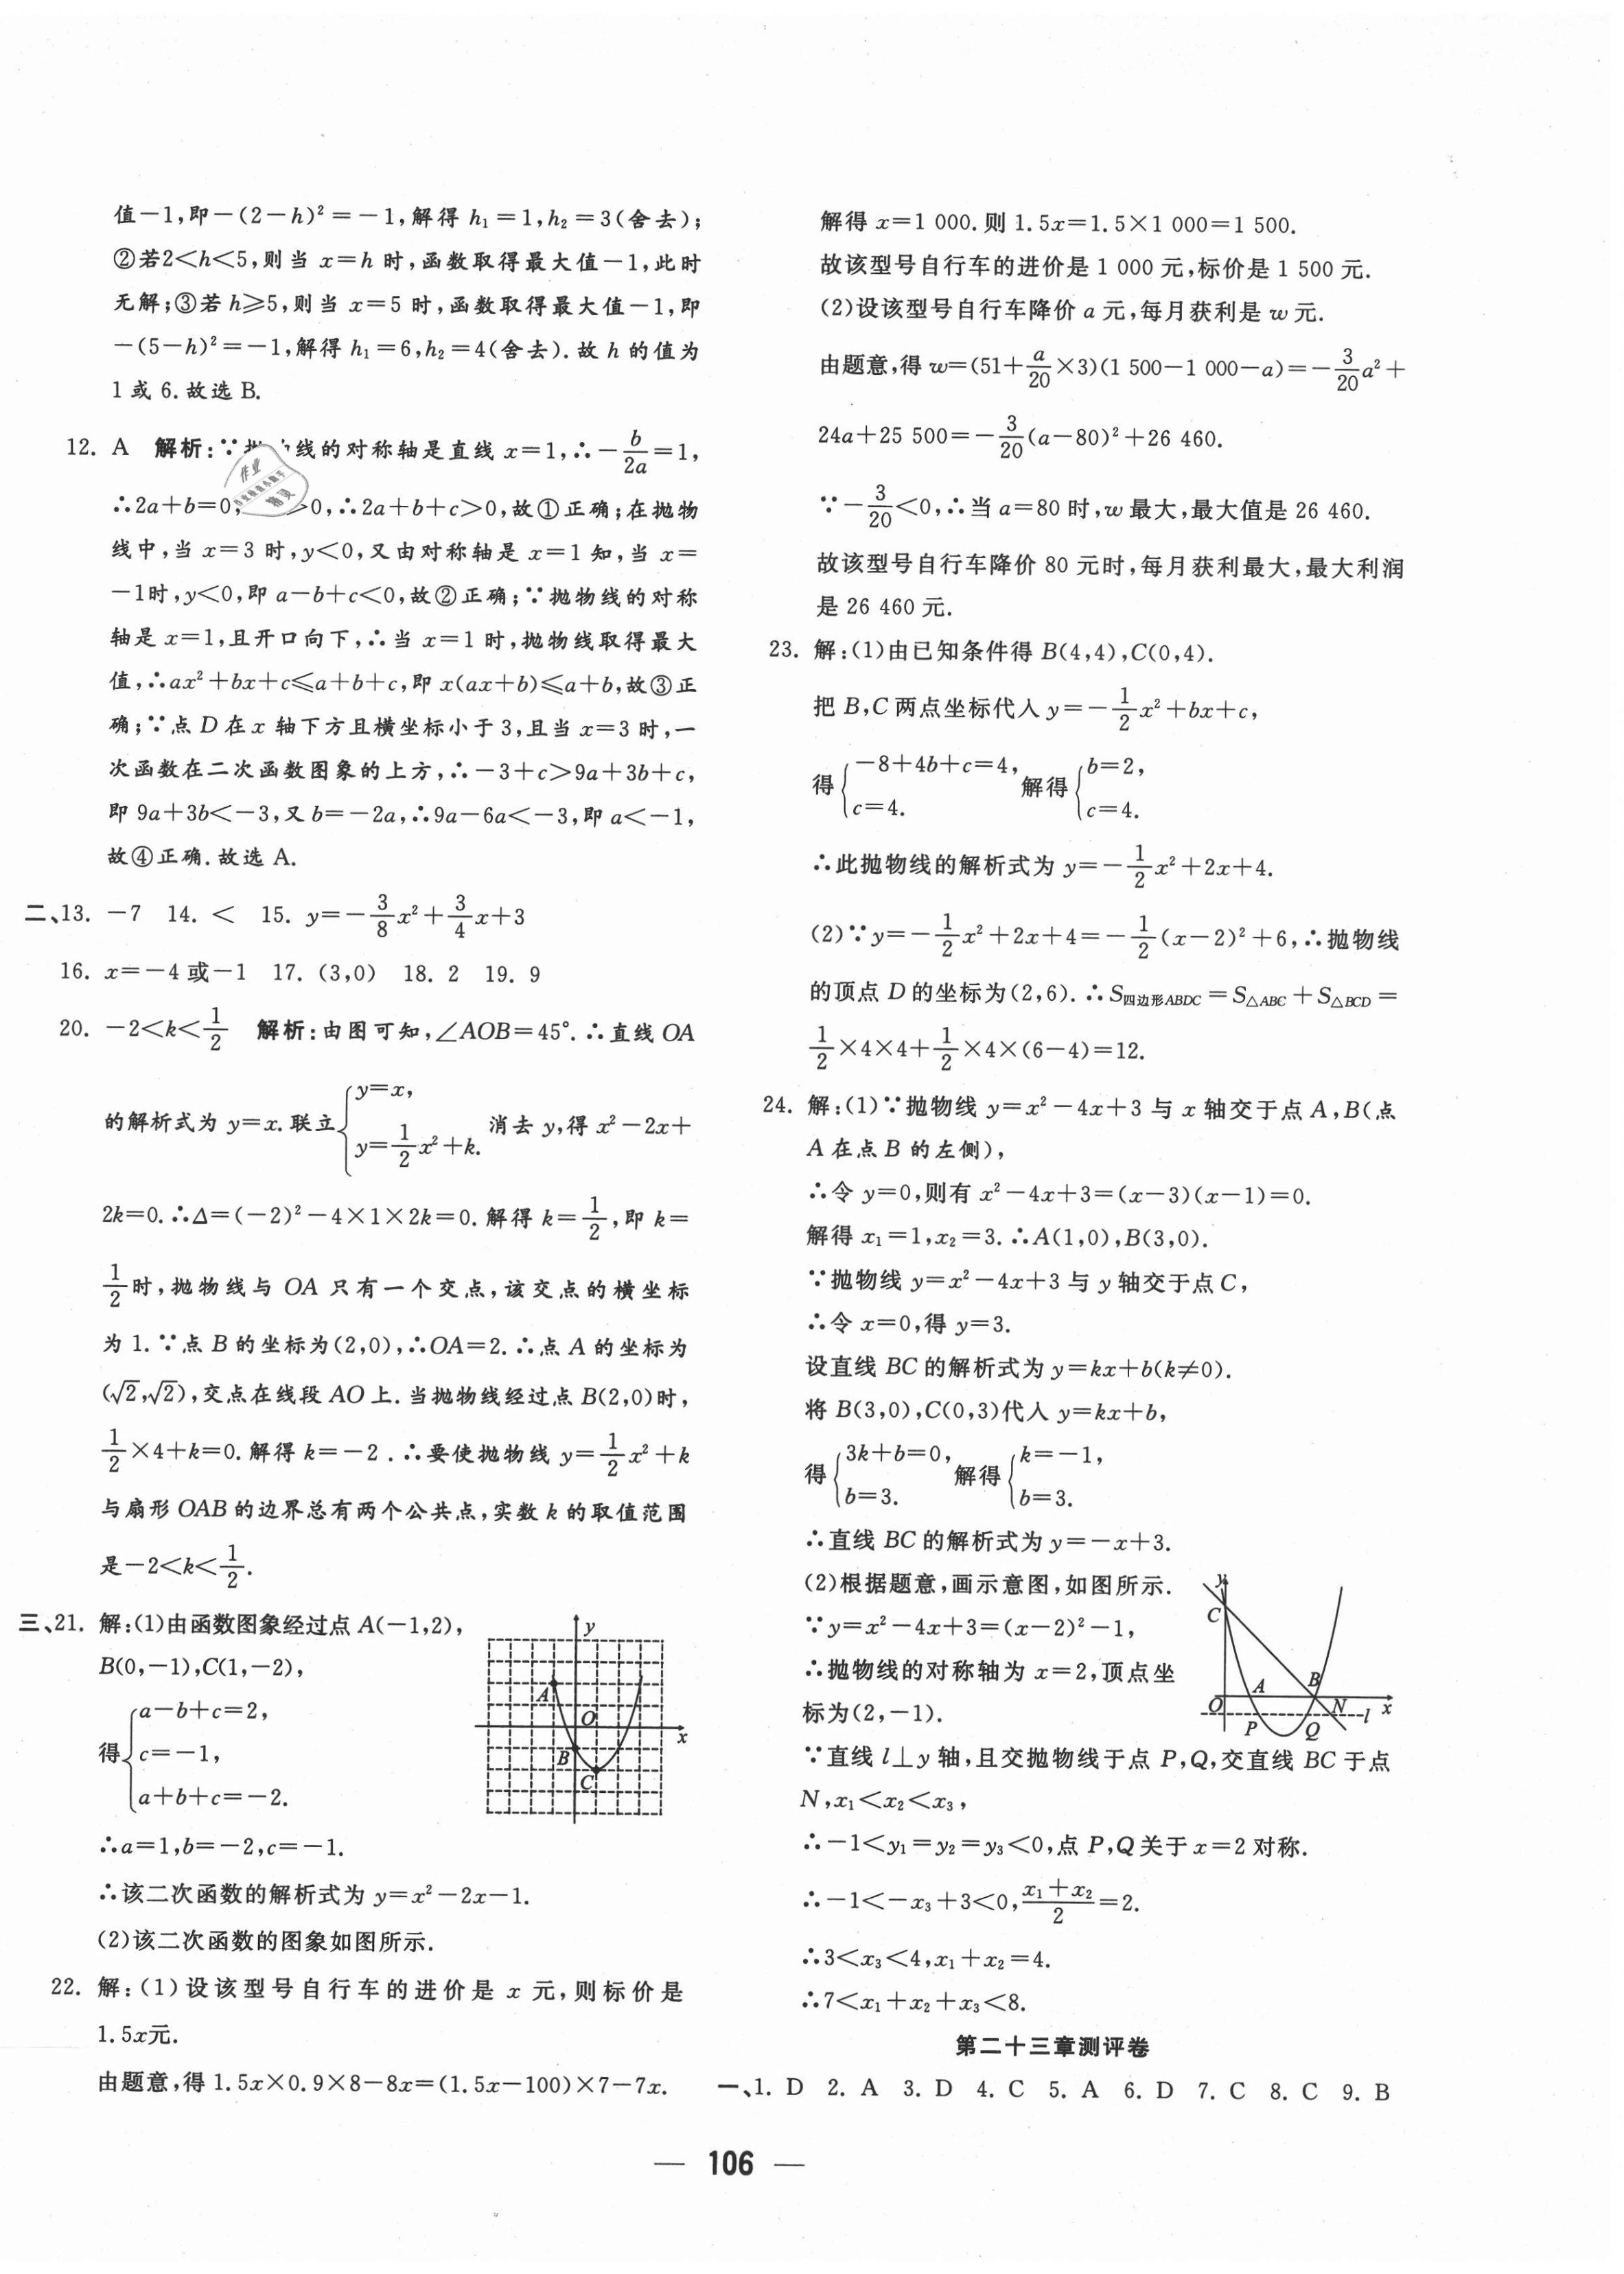 值－1,即－(2－h)²＝－1,解得 h₁＝1,h₂＝3(舍去);
②若2＜h＜5,则当 x＝h 时,函数取得最大值－1,此时
无解;③若 h≥5,则当 x＝5 时,函数取得最大值－1,即
－(5－h)²＝－1,解得 h₁＝6,h₂＝4(舍去).故 h 的值为
1 或 6.故选 B.
12. A 解析:∵ 线的对称轴是直线 x＝1,∴－b/2a＝1,
∴2a＋b＝0, ＞0,∴2a＋b＋c＞0,故①正确;在抛物
线中,当 x＝3 时,y＜0,又由对称轴是 x＝1 知,当 x＝
－1时,y＜0,即 a－b＋c＜0,故②正确;∵抛物线的对称
轴是 x＝1,且开口向下,∴当 x＝1 时,抛物线取得最大
值,∴ax²＋bx＋c≤a＋b＋c,即 x(ax＋b)≤a＋b,故③正
确;∵点 D 在 x 轴下方且横坐标小于 3,且当 x＝3 时,一
次函数在二次函数图象的上方,∴－3＋c＞9a＋3b＋c,
即 9a＋3b＜－3,又 b＝－2a,∴9a－6a＜－3,即 a＜－1,
故④正确.故选 A.
二、13. －7 14. ＜ 15. y＝－3/8x²＋3/4x＋3
16. x＝－4 或－1 17. (3,0) 18. 2 19. 9
20. －2＜k＜1/2 解析:由图可知,∠AOB＝45°.∴直线 OA
的解析式为 y＝x.联立{y＝x, y＝1/2x²＋k. 消去 y,得 x²－2x＋
2k＝0.∴Δ＝(－2)²－4×1×2k＝0.解得 k＝1/2,即 k＝
1/2时,抛物线与 OA 只有一个交点,该交点的横坐标
为 1.∵点 B 的坐标为(2,0),∴OA＝2.∴点 A 的坐标为
(√2,√2),交点在线段 AO 上.当抛物线经过点 B(2,0)时,
1/2×4＋k＝0.解得 k＝－2.∴要使抛物线 y＝1/2x²＋k
与扇形 OAB 的边界总有两个公共点,实数 k 的取值范围
是－2＜k＜1/2.
三、21. 解:(1)由函数图象经过点 A(－1,2),
B(0,－1),C(1,－2),
得{a－b＋c＝2,
c＝－1,
a＋b＋c＝－2.
y
A
O
x
B
C
∴a＝1,b＝－2,c＝－1.
∴该二次函数的解析式为 y＝x²－2x－1.
(2)该二次函数的图象如图所示.
22. 解:(1)设该型号自行车的进价是 x 元,则标价是
1.5x元.
由题意,得 1.5x×0.9×8－8x＝(1.5x－100)×7－7x.
解得 x＝1 000.则 1.5x＝1.5×1 000＝1 500.
故该型号自行车的进价是 1 000 元,标价是 1 500 元.
(2)设该型号自行车降价 a 元,每月获利是 w 元.
由题意,得 w＝(51＋a/20×3)(1 500－1 000－a)＝－3/20a²＋
24a＋25 500＝－3/20(a－80)²＋26 460.
∵－3/20＜0,∴当 a＝80 时,w 最大,最大值是 26 460.
故该型号自行车降价 80 元时,每月获利最大,最大利润
是 26 460 元.
23. 解:(1)由已知条件得 B(4,4),C(0,4).
把 B,C 两点坐标代入 y＝－1/2x²＋bx＋c,
得{－8＋4b＋c＝4, c＝4. 解得{b＝2, c＝4.
∴此抛物线的解析式为 y＝－1/2x²＋2x＋4.
(2)∵y＝－1/2x²＋2x＋4＝－1/2(x－2)²＋6,∴抛物线
的顶点 D 的坐标为(2,6).∴S四边形ABDC＝S△ABC＋S△BCD＝
1/2×4×4＋1/2×4×(6－4)＝12.
24. 解:(1)∵抛物线 y＝x²－4x＋3 与 x 轴交于点 A,B(点
A 在点 B 的左侧),
∴令 y＝0,则有 x²－4x＋3＝(x－3)(x－1)＝0.
解得 x₁＝1,x₂＝3.∴A(1,0),B(3,0).
∵抛物线 y＝x²－4x＋3 与 y 轴交于点 C,
∴令 x＝0,得 y＝3.
设直线 BC 的解析式为 y＝kx＋b(k≠0).
将 B(3,0),C(0,3)代入 y＝kx＋b,
得{3k＋b＝0, b＝3. 解得{k＝－1, b＝3.
∴直线 BC 的解析式为 y＝－x＋3.
(2)根据题意,画示意图,如图所示.
∵y＝x²－4x＋3＝(x－2)²－1,
∴抛物线的对称轴为 x＝2,顶点坐
标为(2,－1).
y
C
A
B
O
N
l
x
P
Q
∵直线 l⊥y 轴,且交抛物线于点 P,Q,交直线 BC 于点
N,x₁＜x₂＜x₃,
∴－1＜y₁＝y₂＝y₃＜0,点 P,Q 关于 x＝2 对称.
∴－1＜－x₃＋3＜0,(x₁＋x₂)/2＝2.
∴3＜x₃＜4,x₁＋x₂＝4.
∴7＜x₁＋x₂＋x₃＜8.
第二十三章测评卷
一、1. D 2. A 3. D 4. C 5. A 6. D 7. C 8. C 9. B
— 106 —